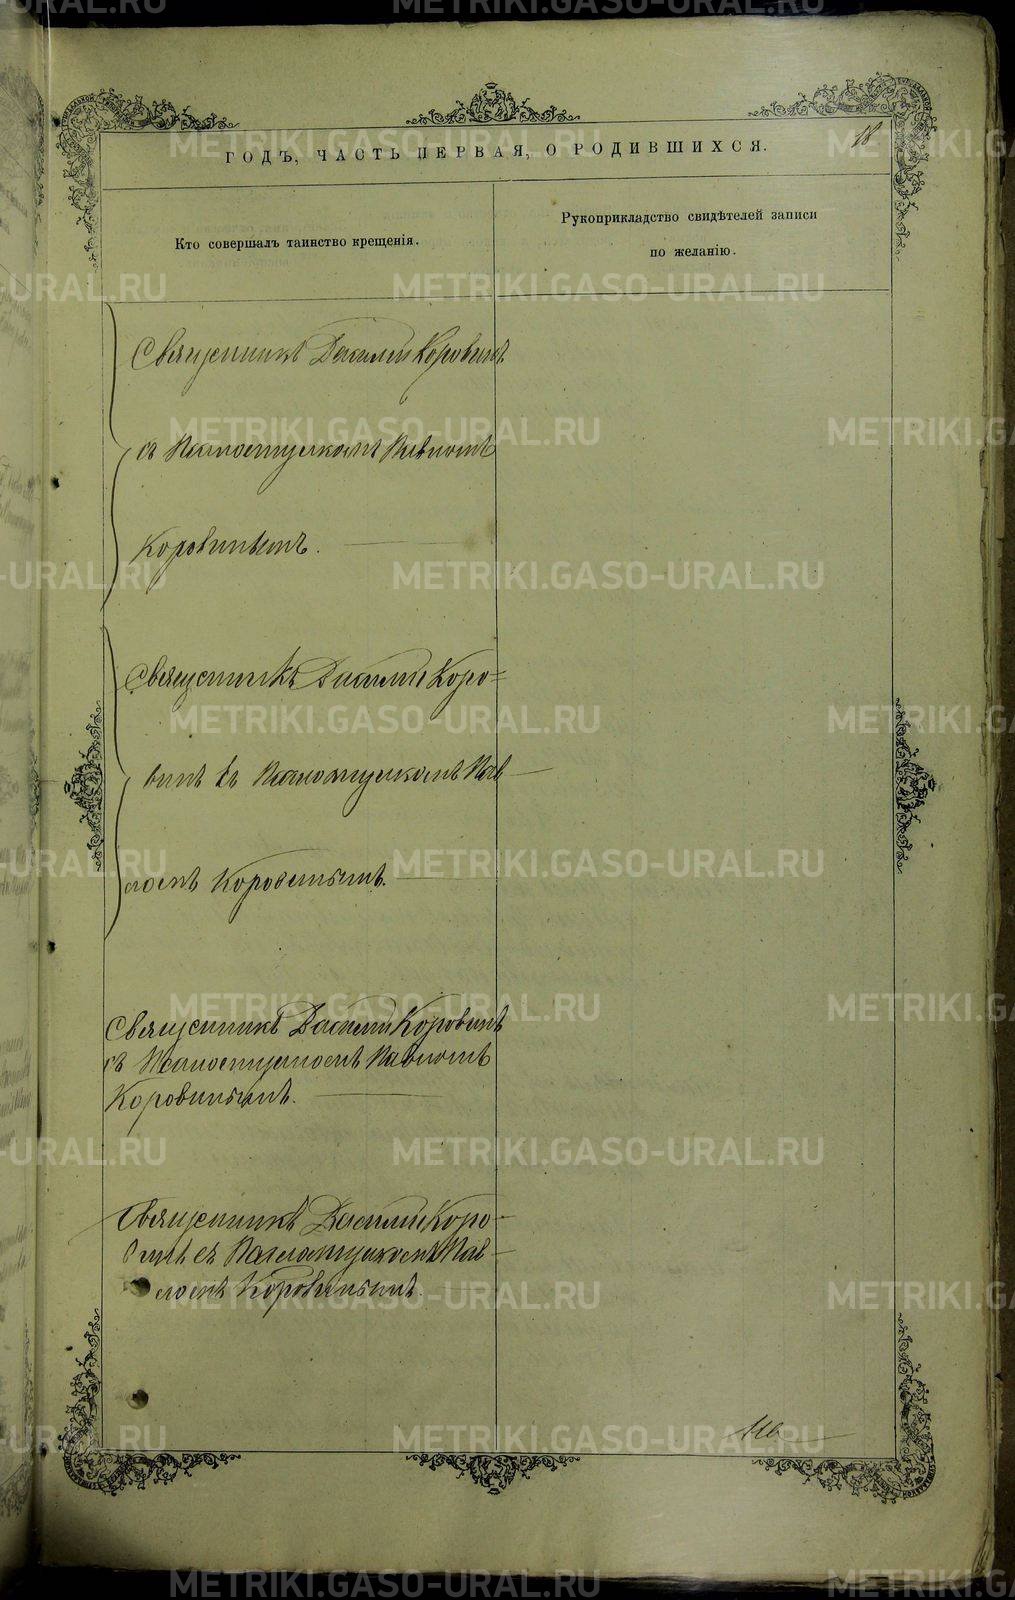 18
ГОДЪ, ЧАСТЬ ПЕРВАЯ, О РОДИВШИХСЯ.
Кто совершалъ таинство крещенія.
Рукоприкладство свидѣтелей записи
по желанію.
Священникъ Василій Коровинъ
съ Псаломщикомъ Павломъ
Коровинымъ.
Священникъ Василій Коро=
винъ съ Псаломщикомъ Пав
ломъ Коровинымъ.
Священникъ Василій Коровинъ
съ Псаломщикомъ Павломъ
Коровинымъ.
Священникъ Василій Коро-
винъ съ Псаломщикомъ Пав-
ломъ Коровинымъ.
METRIKI.GASO-URAL.RU